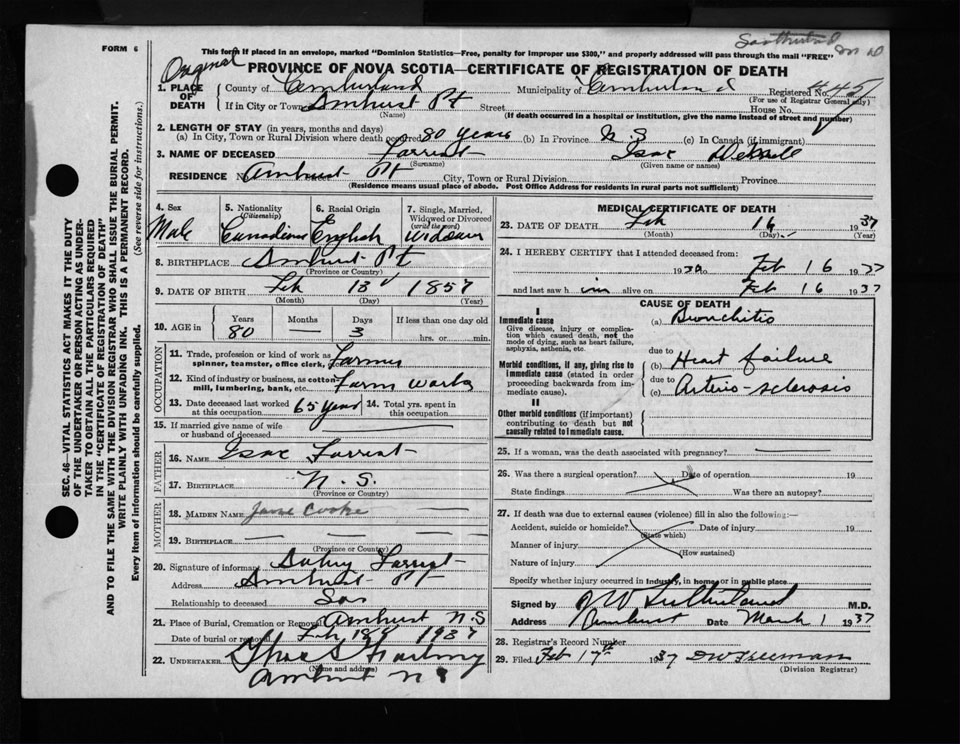 FORM 6
This form if placed in an envelope, marked "Dominion Statistics—Free, penalty for improper use $300," and properly addressed will pass through the mail "FREE"
Original
PROVINCE OF NOVA SCOTIA—CERTIFICATE OF REGISTRATION OF DEATH
1. PLACE OF DEATH
County of Cumberland Municipality of Cumberland Registered No.
(For use of Registrar General only)
If in City or Town Amhurst Pt Street House No.
(Name) (If death occurred in a hospital or institution, give the name instead of street and number)
2. LENGTH OF STAY (in years, months and days)
(a) In City, Town or Rural Division where death occurred 80 years (b) In Province N S (c) In Canada (if immigrant)
3. NAME OF DECEASED Forrest Isac
(Surname) (Given name or names)
RESIDENCE Amhurst Pt City, Town or Rural Division Province
(Residence means usual place of abode. Post Office Address for residents in rural parts not sufficient)
SEC. 46—VITAL STATISTICS ACT MAKES IT THE DUTY
OF THE UNDERTAKER OR PERSON ACTING AS UNDER-
TAKER TO OBTAIN ALL THE PARTICULARS REQUIRED
IN THE "CERTIFICATE OF REGISTRATION OF DEATH"
AND TO FILE THE SAME WITH THE DIVISION REGISTRAR WHO SHALL ISSUE THE BURIAL PERMIT.
WRITE PLAINLY WITH UNFADING INK. THIS IS A PERMANENT RECORD.
Every item of information should be carefully supplied. (See reverse side for instructions.)
4. Sex Male
5. Nationality (Citizenship) Canadian
6. Racial Origin English
7. Single, Married, Widowed or Divorced (write the word) Widower
8. BIRTHPLACE Amhurst Pt
(Province or Country)
9. DATE OF BIRTH Feb 13 1857
(Month) (Day) (Year)
10. AGE in Years 80 Months — Days 3 If less than one day hrs. or min.
OCCUPATION
11. Trade, profession or kind of work as spinner, teamster, office clerk, etc. Farmer
12. Kind of industry or business, as cotton mill, lumbering, bank, etc. Farm work
13. Date deceased last worked at this occupation 65 years 14. Total yrs. spent in this occupation
15. If married give name of wife or husband of deceased
FATHER
16. NAME Isac Forrest
17. BIRTHPLACE N. S.
(Province or Country)
MOTHER
18. MAIDEN NAME Jane Cooke
19. BIRTHPLACE — — —
(Province or Country)
20. Signature of informant Forrest
Address Amhurst Pt
Relationship to deceased Son
21. Place of Burial, Cremation or Removal Amhurst N.S
Date of burial or removal Feb 18 1937
22. UNDERTAKER
(Name and address)
Amhurst N S
MEDICAL CERTIFICATE OF DEATH
23. DATE OF DEATH Feb 16 1937
(Month) (Day) (Year)
24. I HEREBY CERTIFY that I attended deceased from:
193 to Feb 16 1937
and last saw him alive on Feb 16 1937
CAUSE OF DEATH
I
Immediate cause
Give disease, injury or complication which caused death, not the mode of dying, such as heart failure, asphyxia, asthenia, etc.
(a) Bronchitis
due to
Morbid conditions, if any, giving rise to immediate cause (stated in order proceeding backwards from immediate cause).
(b) Heart failure
due to
(c) Arterio-sclerosis
II
Other morbid conditions (if important) contributing to death but not causally related to immediate cause.
25. If a woman, was the death associated with pregnancy?
26. Was there a surgical operation? Date of operation 19
State findings Was there an autopsy?
27. If death was due to external causes (violence) fill in also the following:—
Accident, suicide or homicide? Date of injury 19
(State which)
Manner of injury
(How sustained)
Nature of injury
Specify whether injury occurred in industry, in home or in public place.
Signed by Sutherland M.D.
Address Amhurst Date March 1 1937
28. Registrar's Record Number
29. Filed Feb 17th 1937 D W Freeman
(Division Registrar)